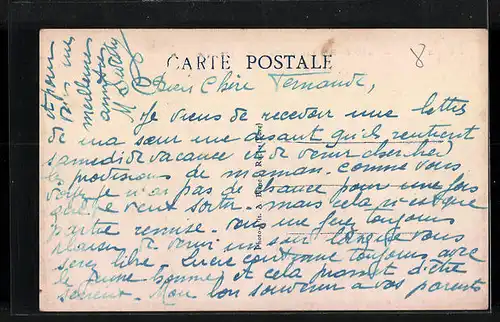 CARTE POSTALE
8
Bien Chère Fernande,
Je viens de recevoir une lettre
de ma sœur me disant qu'ils rentrent
samedi de vacance et de venir chercher
les provisions de maman. Comme vous
voyez je n'ai pas de chance pour une fois
que je veux sortir. mais cela n'est que
partie remise. vous me ferez toujours
plaisir de venir un soir lorsque vous
serez libre. Lucie continue toujours avec
le jeune homme et cela promet d'être
sérieux. Mon bon souvenir a vos parents
et pour
vous mes
meilleures
amitiés
M